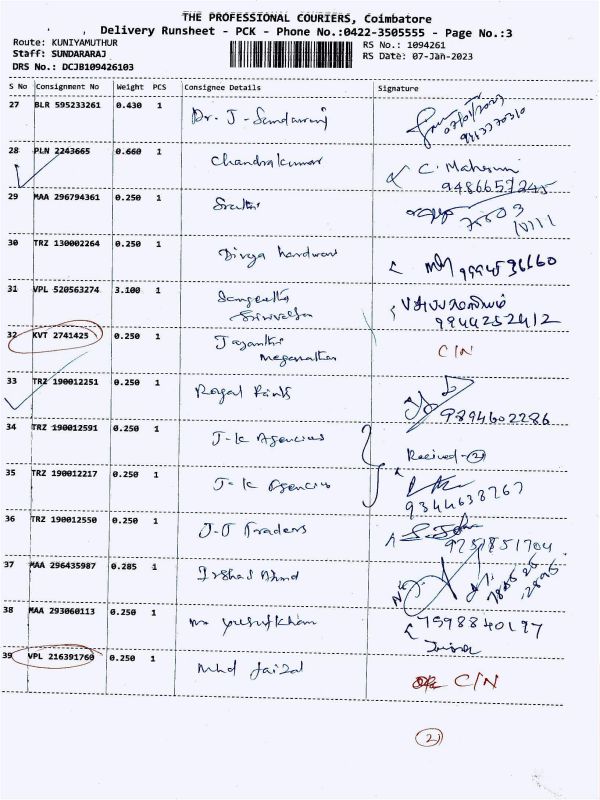 THE PROFESSIONAL COURIERS, Coimbatore
Delivery Runsheet - PCK - Phone No.:0422-3505555 - Page No.:3
Route: KUNIYAMUTHUR
RS No.: 1094261
Staff: SUNDARARAJ
RS Date: 07-Jan-2023
DRS No.: DCJB109426103
S No Consignment No Weight PCS Consignee Details Signature
27 BLR 595233261 0.430 1 Dr. J-
28 PLN 2243665 0.660 1 Chandrakumar C.
9486657245
29 MAA 296794361 0.250 1
30 TRZ 130002264 0.250 1 Divya hardware
31 VPL 520563274 3.100 1 Sangeetha
Srinivasan
9944252412
32 KVT 2741425 0.250 1 Jayanthi C/N
Meganathan
33 TRZ 190012251 0.250 1 Royal Paints
9894602286
34 TRZ 190012591 0.250 1 J-K Agencies Recived-2
35 TRZ 190012217 0.250 1 J-K Agencies
9344638767
36 TRZ 190012550 0.250 1 J-J Traders
9251851704
37 MAA 296435987 0.285 1 Irshad Ahmd
38 MAA 293060113 0.250 1 yusufkhan 7598840197
39 VPL 216391760 0.250 1 Mhd faizal C/N
2